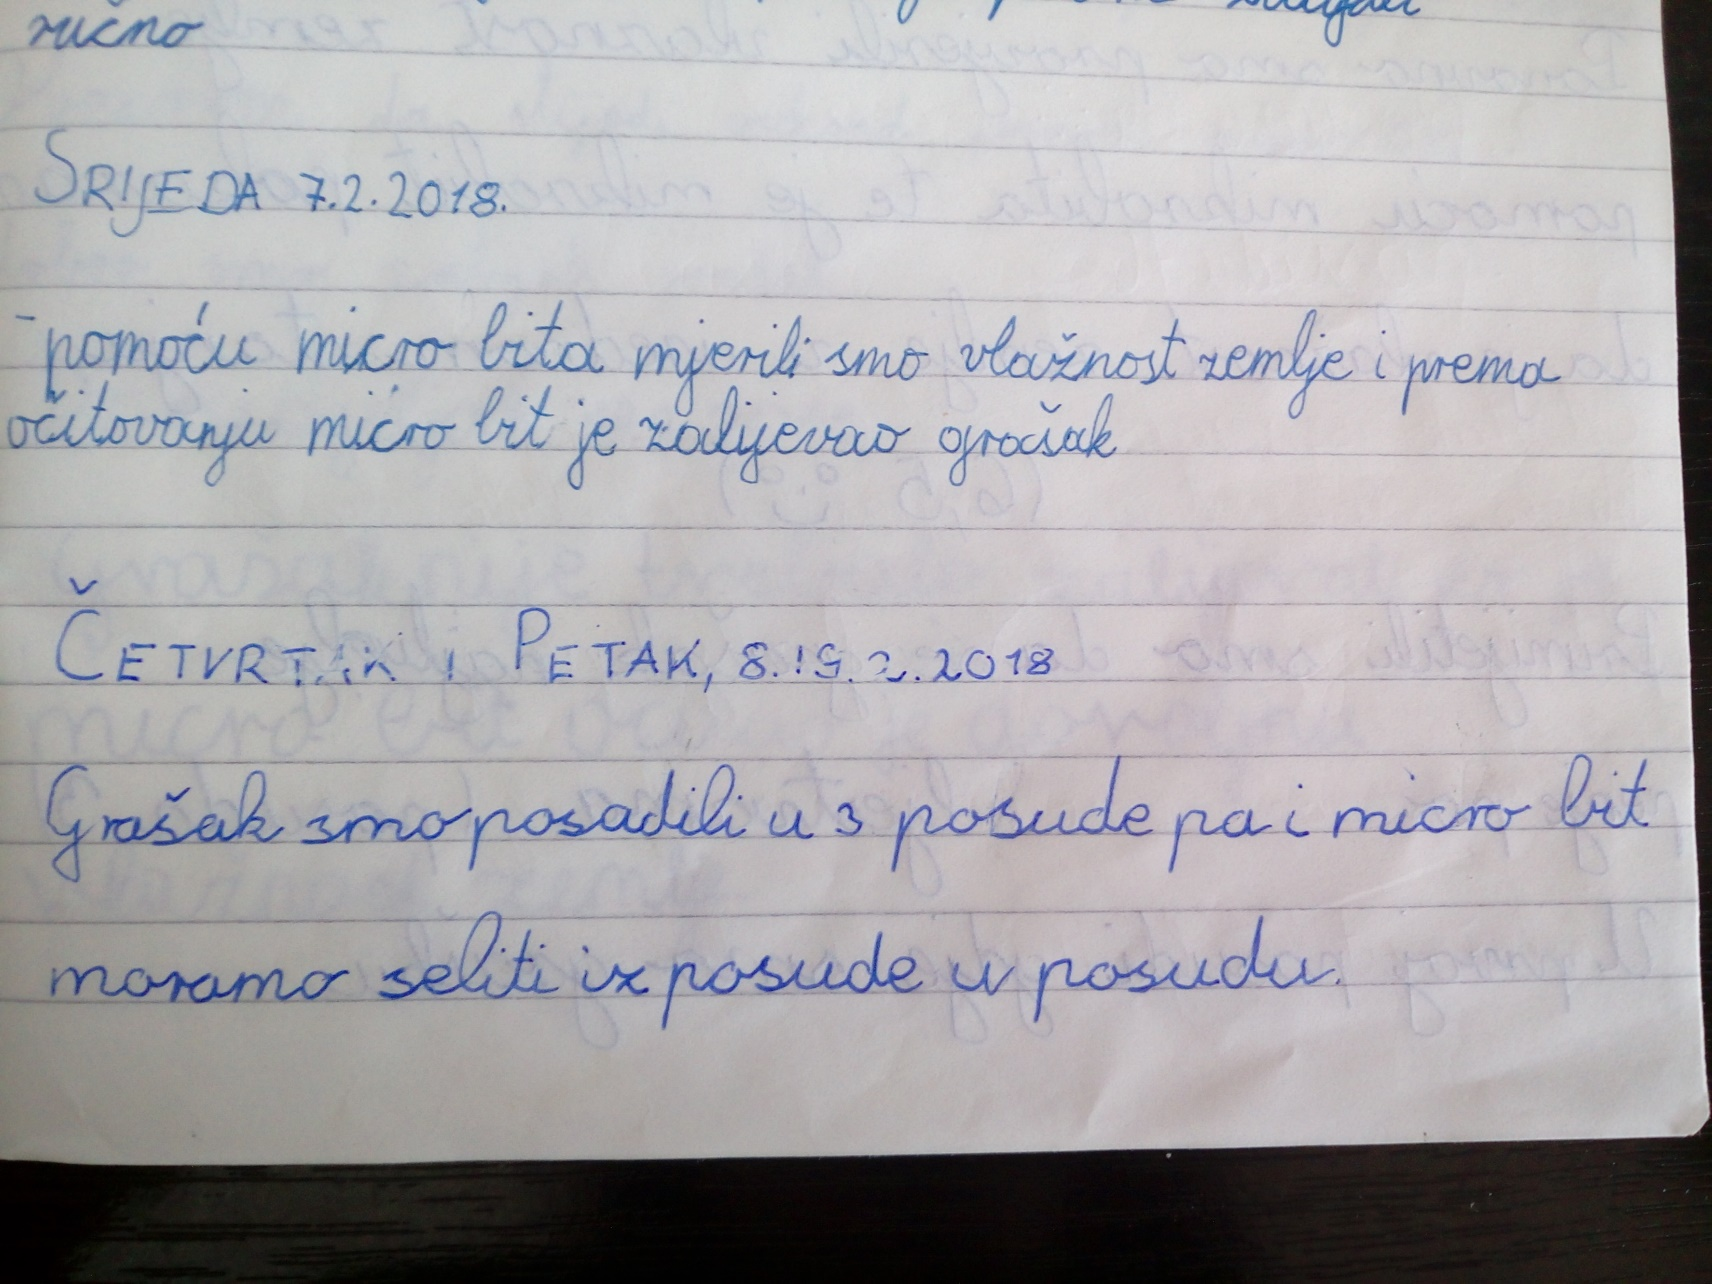 ručno
SRIJEDA 7.2.2018.
-pomoću micro bita mjerili smo vlažnost zemlje i prema
očitovanju micro bit je zalijevao grašak
ČETVRTAK I PETAK, 8.I 9.2.2018
Grašak smo posadili u 3 posude pa i micro bit
moramo seliti iz posude u posudu.